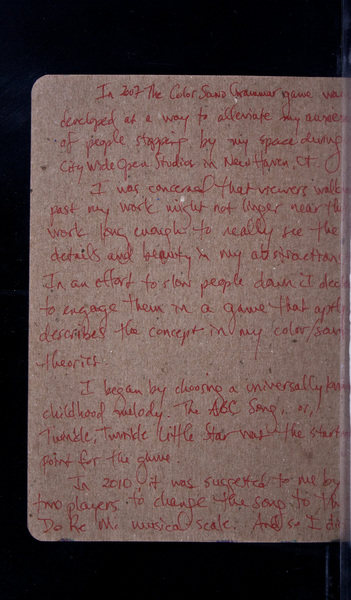 In 2007 The Color Sound Grammar game was
developed as a way to alleviate my
of people stopping by my space during
City Wide Open Studios in New Haven, Ct.
I was concerned that viewers
past my work might not linger near the
work long enough to really see the
details and beauty in my abstraction
In an effort to slow people down I
to engage them in a game that
describes the concept in my color/
theories.
I began by choosing a universally
childhood melody. The ABC Song, or,
Twinkle, Twinkle Little Star was the
point for the game.
In 2010 it was suggested to me by
two players to change the song to
Do Re Mi musical scale. And so I